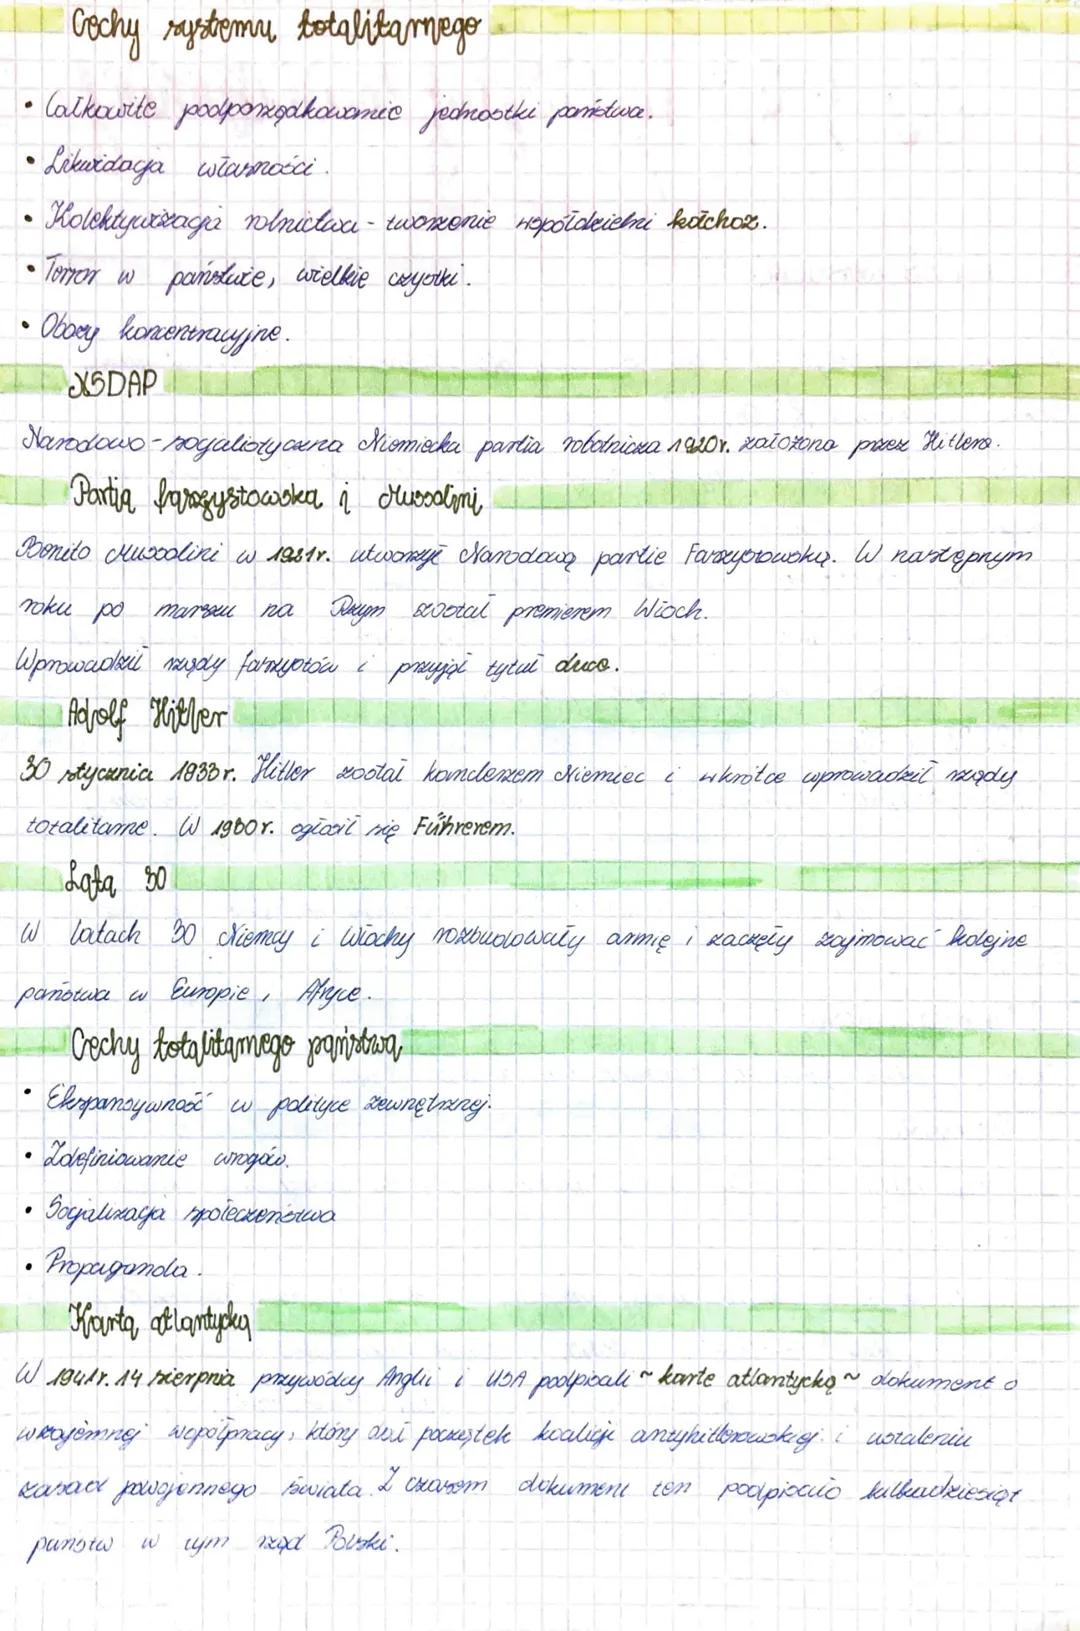 Cechy systemu totalitarnego
• Całkowite podporządkowanie jednostki państwa.
• Likwidacja własności.
• Kolektywizacja rolnictwa - tworzenie współdzielni kołchoz.
• Terror w państwie, wielkie czystki.
• Obozy koncentracyjne.
NSDAP
Narodowo-socjalistyczna Niemiecka partia robotnicza 1920r. założona przez Hitlera.
Partia faszystowska i Mussolini
Benito Mussolini w 1921r. utworzył Narodową partie Faszystowską. W następnym
roku po marszu na Rzym został premierem Włoch.
Wprowadził rządy faszystów i przyjął tytuł duce.
Adolf Hitler
30 stycznia 1933r. Hitler został kanclerzem Niemiec i wkrótce wprowadził rządy
totalitarne. W 1930r. ogłosił się Führerem.
Lata 30
W latach 30 Niemcy i Włochy rozbudowały armię i zaczęły zajmować kolejne
państwa w Europie, Afryce.
Cechy totalitarnego państwa
• Ekspansywność w polityce zewnętrznej.
• Zdefiniowanie wrogów.
• Socjalizacja społeczeństwa
• Propaganda.
Karta atlantycka
W 1941r. 14 sierpnia przywódcy Anglii i USA podpisali ~ karte atlantycką ~ dokument o
wzajemnej współpracy, który dał początek koalicji antyhitlerowskiej i ustaleniu
zasad powojennego świata. Z czasem dokument ten podpisało kilkadziesiąt
państw w tym rząd Polski.